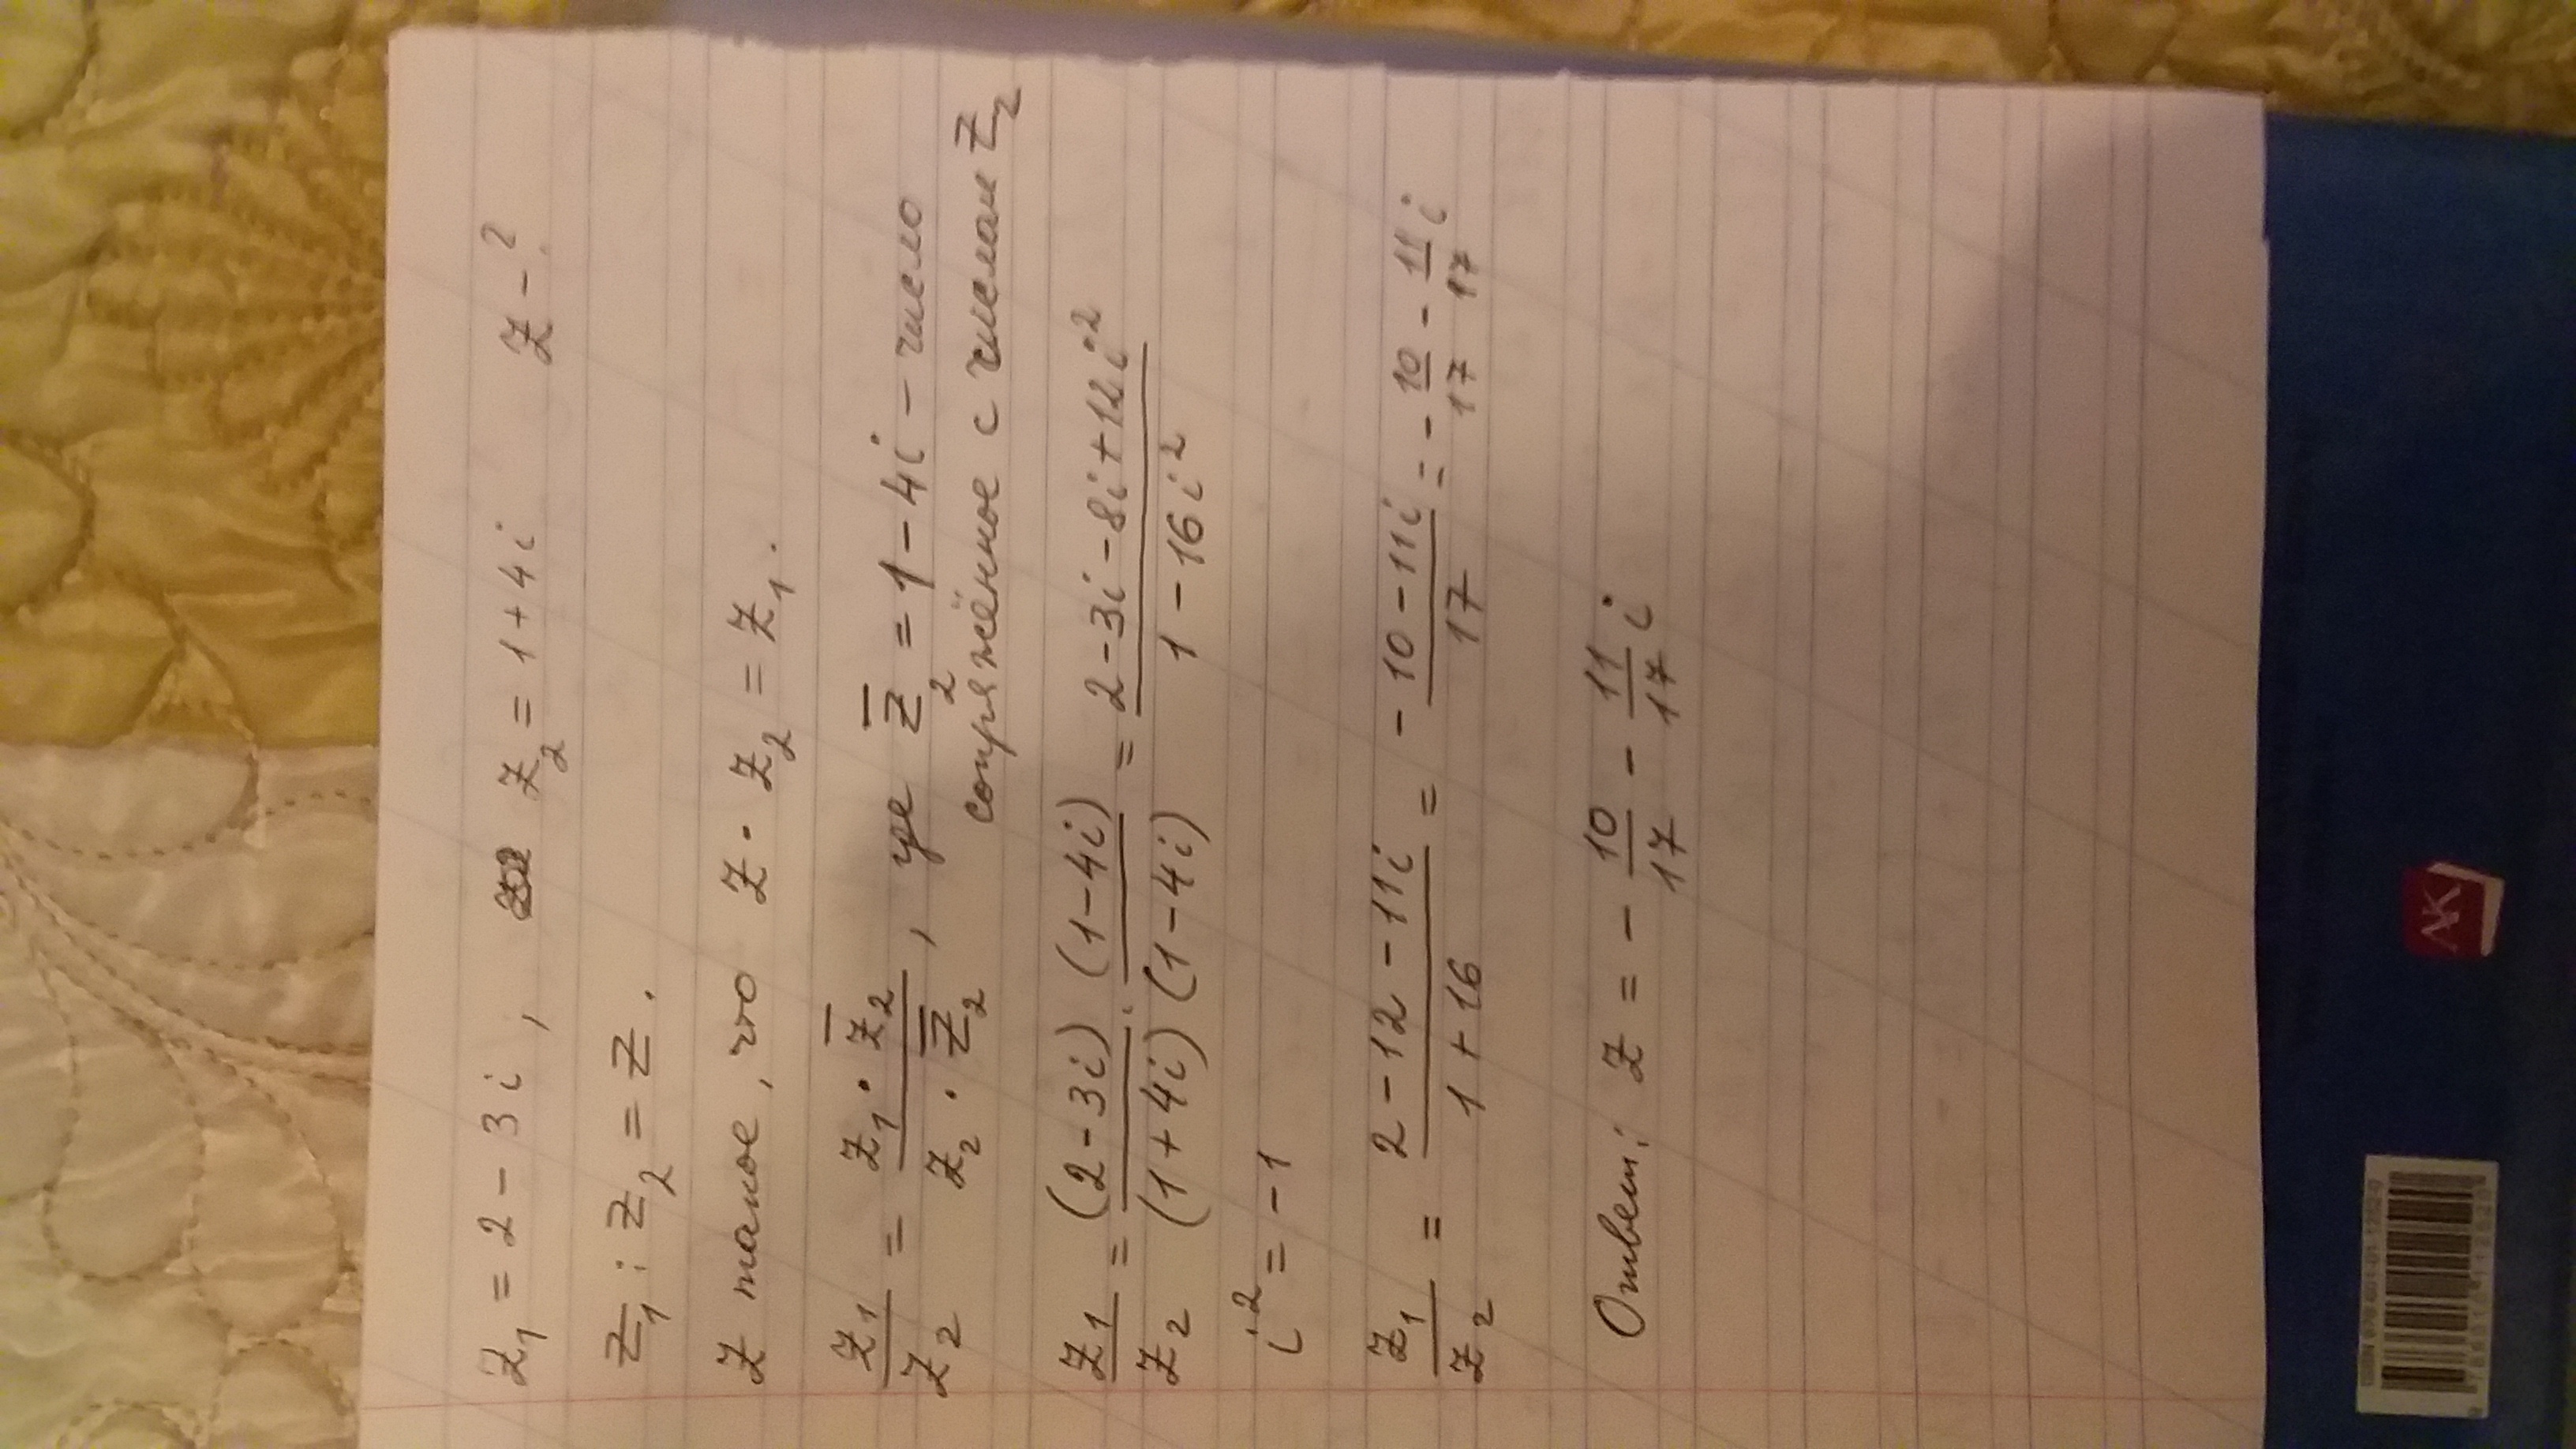 z₁ = 2 - 3i , z₂ = 1 + 4i z - ?
z₁ : z₂ = z .
z такое, что z · z₂ = z₁ .
z₁/z₂ = (z₁ · z̅₂)/(z₂ · z̅₂) , где z̅₂ = 1 - 4i - число
сопряжённое с числом z₂
z₁/z₂ = ((2 - 3i) · (1 - 4i))/((1 + 4i) (1 - 4i)) = (2 - 3i - 8i + 12i²)/(1 - 16i²)
i² = -1
z₁/z₂ = (2 - 12 - 11i)/(1 + 16) = (- 10 - 11i)/17 = - 10/17 - 11/17 i
Ответ: z = - 10/17 - 11/17 i